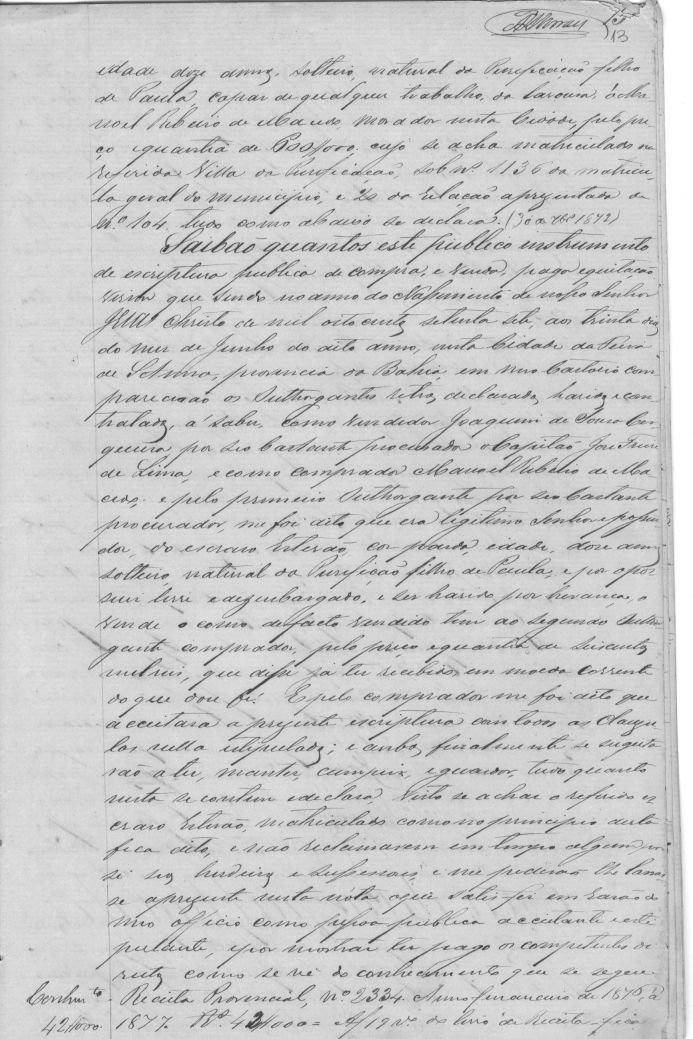 13
idade doze annos, solteiro, natural da Purificação filho
de Paula, capaz de qualquer trabalho, da lavoura, a Ma-
noel Ribeiro de Macedo, morador nesta Cidade, pelo pre-
ço e quantia de cujo se acha matriculado na
referida Villa da Purificação, sob nº 1136 da matricu-
la geral do municipio, e 2 da relação apresentada de
Nº 104, tudo como abaixo se declara.
Saibão quantos este publico instrumento
de escriptura publica de compra, e venda, paga e quitação
virem que sendo no anno do Nascimento de nosso Senhor
Jesus Christo de mil oito centos setenta sete, aos trinta dias
do mez de Junho do dito anno, nesta Cidade da Feira
de Sant'Anna, provincia da Bahia, em meu Cartorio com-
parecerão os Outhorgantes retro declarados, havidos e con-
tratados, a saber, como vendedor Joaquim de Souza Cer-
queira por seo bastante procurador o Capitão José Freire
de Lima, e como comprador Manoel Ribeiro de Ma-
cedo; e pelo primeiro Outhorgante por seo bastante
procurador, me foi dito que era legitimo Senhor e possui-
dor, do escravo Estevão, cor parda, idade, doze annos
solteiro, natural da Purificação filho de Paula, e por o pos-
suir livre e desembargado, e ser havido por herança, o
vende o como de facto vendido tem ao segundo Outhor-
gante comprador, pelo preço e quantia de seiscentos
milreis, que disse já ter recebido em moeda corrente
do que dou fé. E pelo comprador me foi dito que
acceitava a presente escriptura com todas as clausu-
las nella estipuladas; e ambos finalmente se sugeita-
vão a ter, manter, cumprir, e guardar, tudo quanto
nesta se contem e declara. Visto se achar o referido es-
cravo Estevão, matriculado como no principio desta
fica dito, e não reclamarem em tempo algum por
si seos herdeiros e sucessores e me pedirão lhe lavras-
se a presente nesta nóta o que satisfiz em razão do
meo officio como pessôa publica acceitante e esti-
pulante, e por mostrar ter pago os competentes di-
reitos como se vê do conhecimento que se segue
Conhm.to Receita Provincial, nº 2334. Anno financeiro de 1876, a
42$000. 1877. Rs 42$000 = A f 19 vº do livro de Receita fica